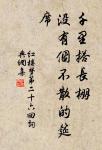 千里搭長棚
沒有個不散的筵
席
紅樓夢第二十六回詞
典網集